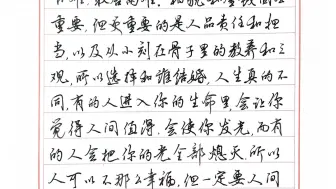 重要,但更重要的是人品责任和担
当,以及从小刻在骨子里的教养和三
观,所以选择和谁结婚,人生真的不
同,有的人进入你的生命里,会让你
觉得人间值得,会使你发光,而有
的人会把你的光全部熄灭,所以
人可以不那么幸福,但一定要人间